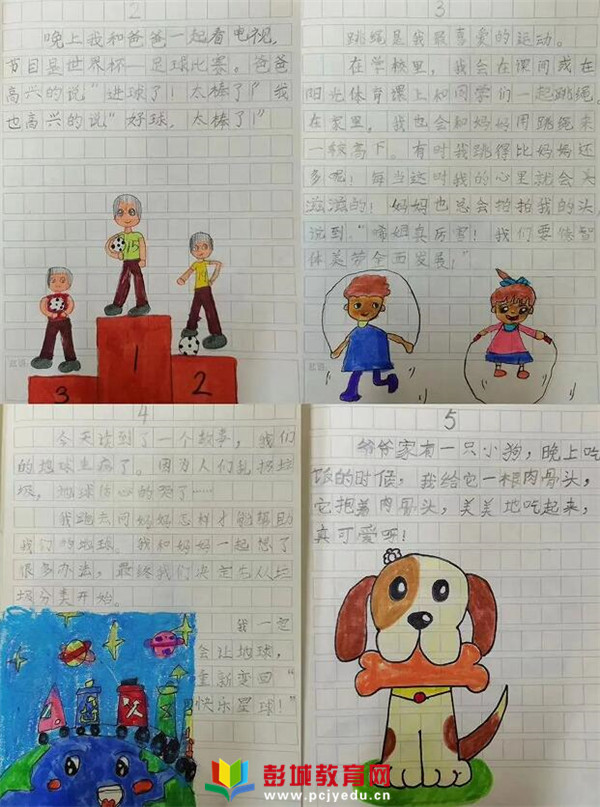 2
晚上我和爸爸一起看电视，
节目是世界杯—足球比赛。爸爸
高兴的说“进球了！太棒了！”我
也高兴的说“好球，太棒了！”
15
1
2
3
3
跳绳是我最喜爱的运动。
在学校里，我会在课间或在
阳光体育课上和同学们一起跳绳。
在家里，我也会和妈妈用跳绳来
一较高下。有时我跳得比妈妈还
多呢！每当这时我的心里就会美
滋滋的！妈妈也总会拍拍我的头
说到：“真厉害！我们要德智
体美劳全面发展！”
4
今天读到了一个故事，我们
的地球生病了。因为人们乱扔垃
圾，地球伤心的哭了……
我跑去问妈妈怎样才能帮助
我们的地球。我和妈妈一起想了
很多办法，最终我们决定先从垃
圾分类开始。
我一定
会让地球，
重新变回“
快乐星球！”
5
爷爷家有一只小狗，晚上吃
饭的时候，我给它一根肉骨头，
它抱着肉骨头，美美地吃起来，
真可爱呀！
彭城教育网
www.pcjyedu.cn